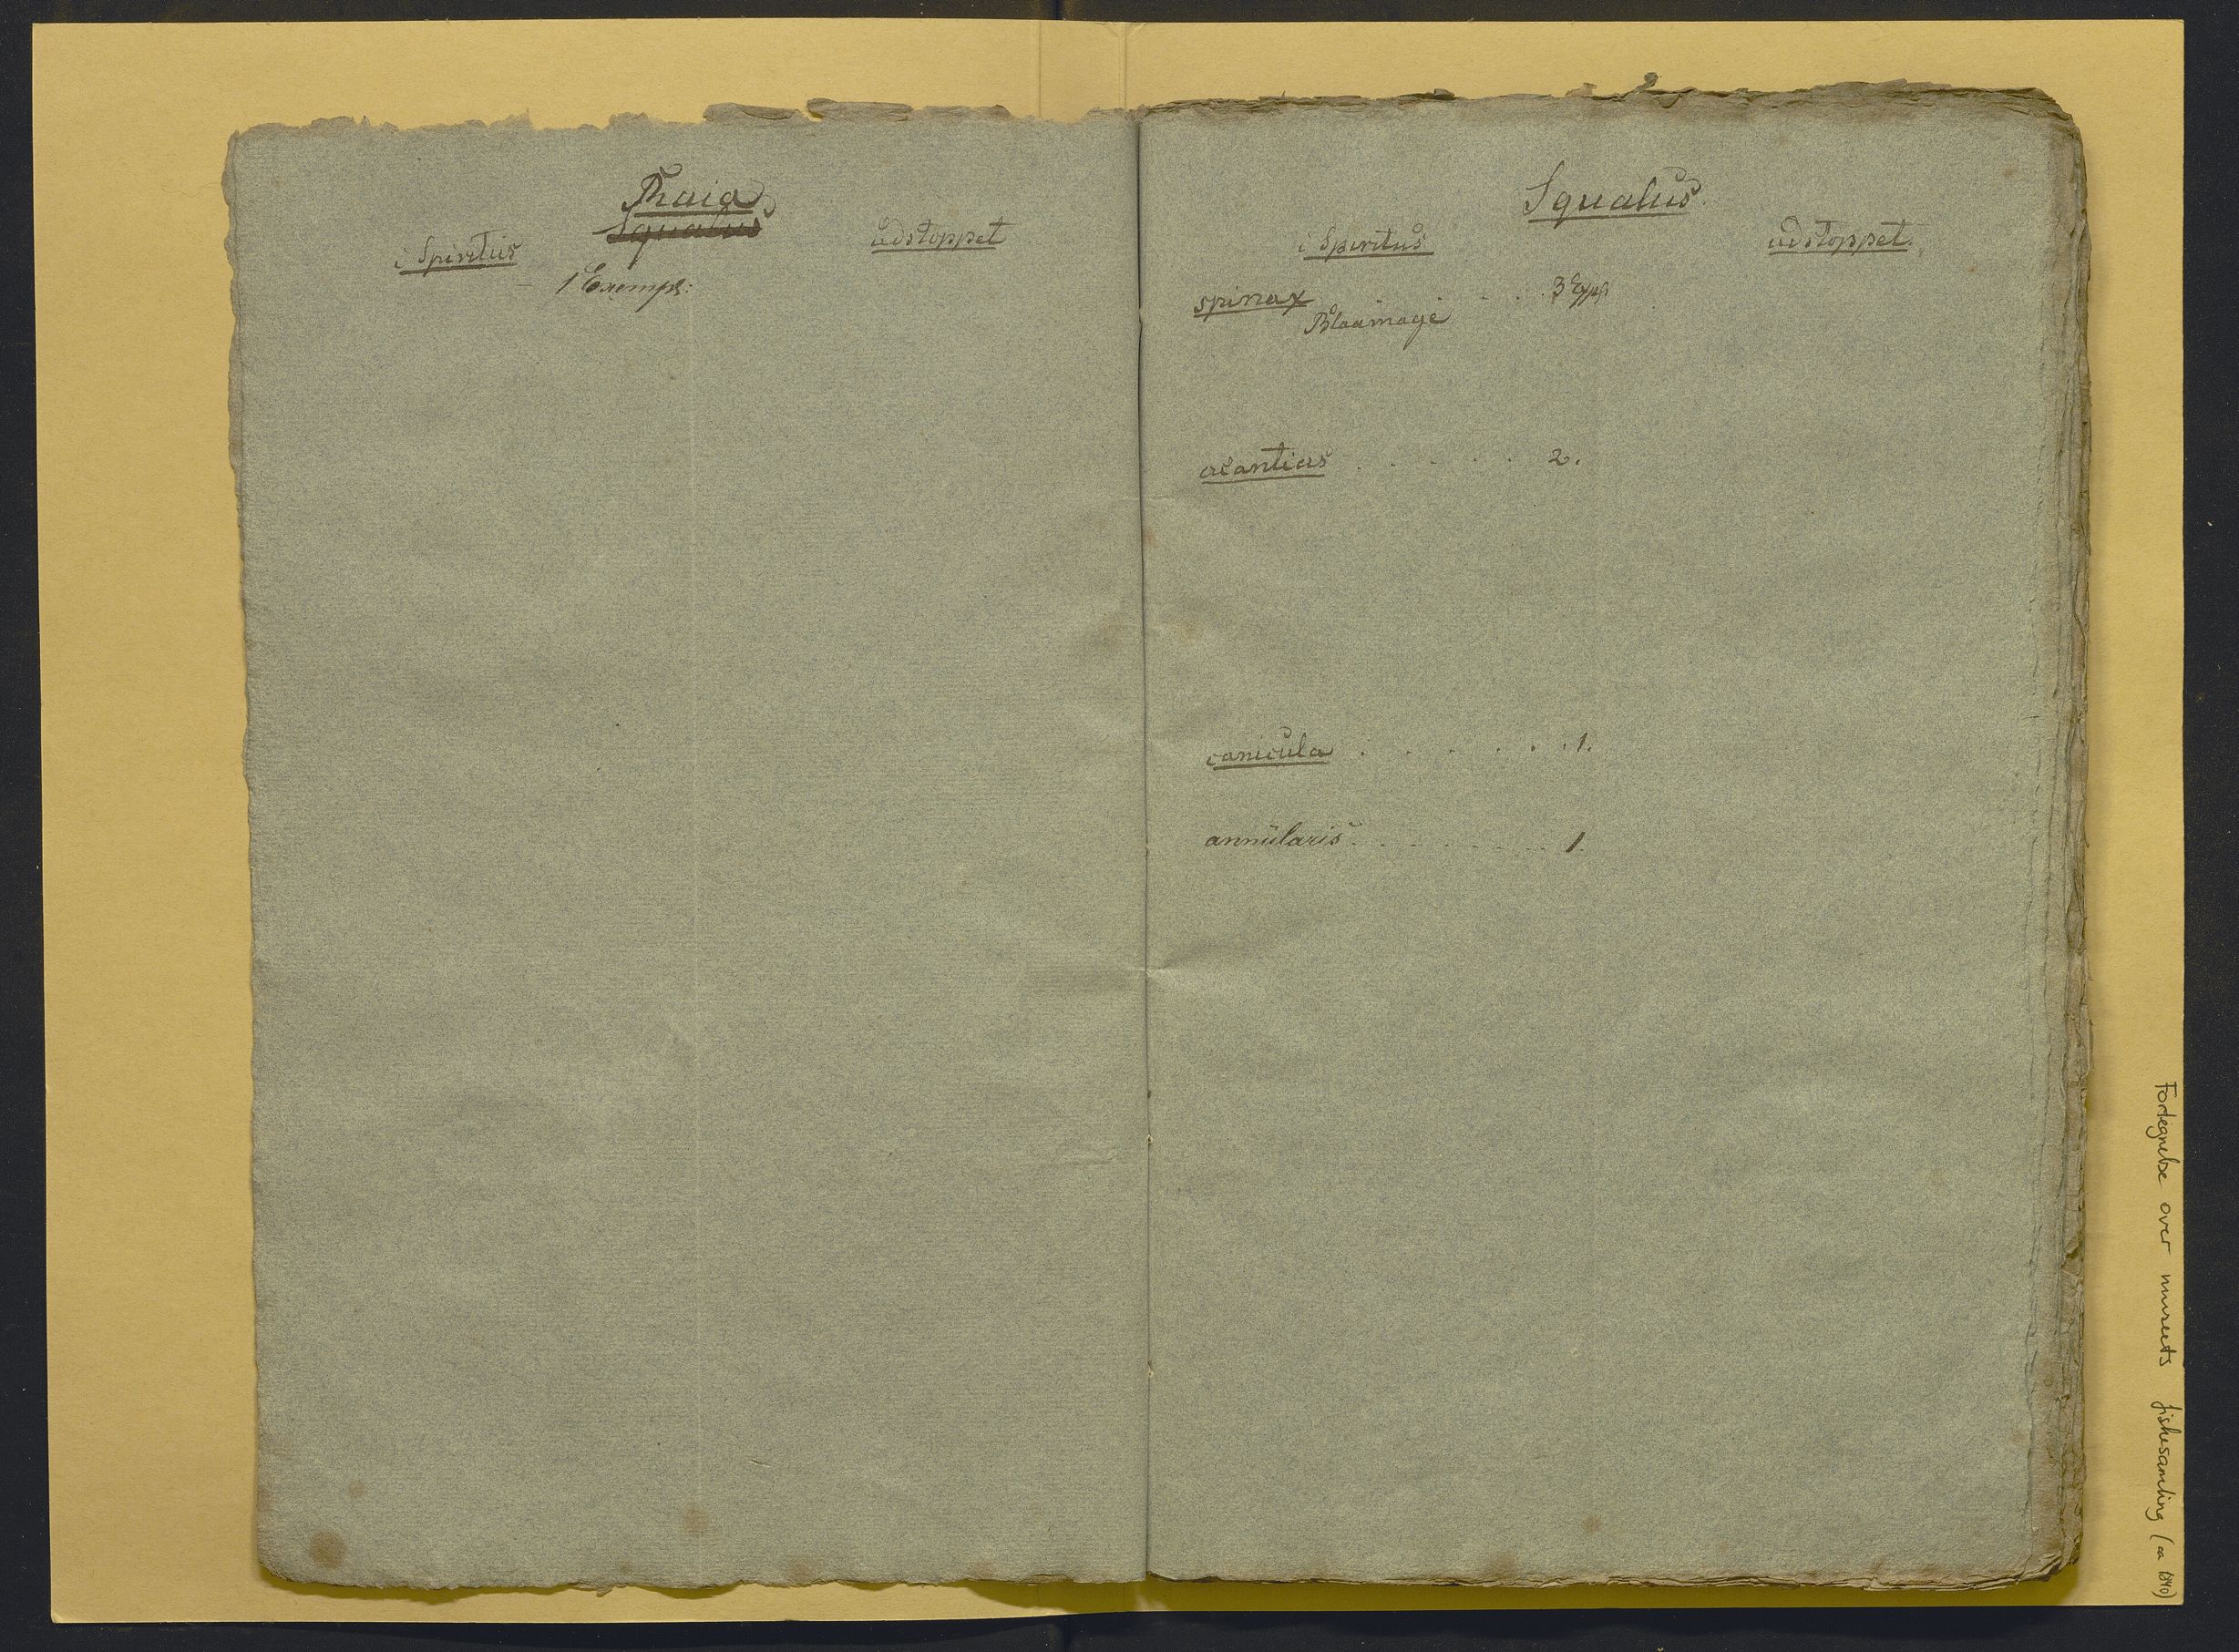 Rhaia
Squalus
i Spiritus
udstoppet
1 Exempl:
Squalus.
i Spiritus
udstoppet.
spinax . . . 3 Expl
Blaamage
acantias . . . . . 2.
canicula . . . . . . 1.
annularis . . . . . . . . 1.
Fortegnelse over museets fiskesamling (ca 1840)